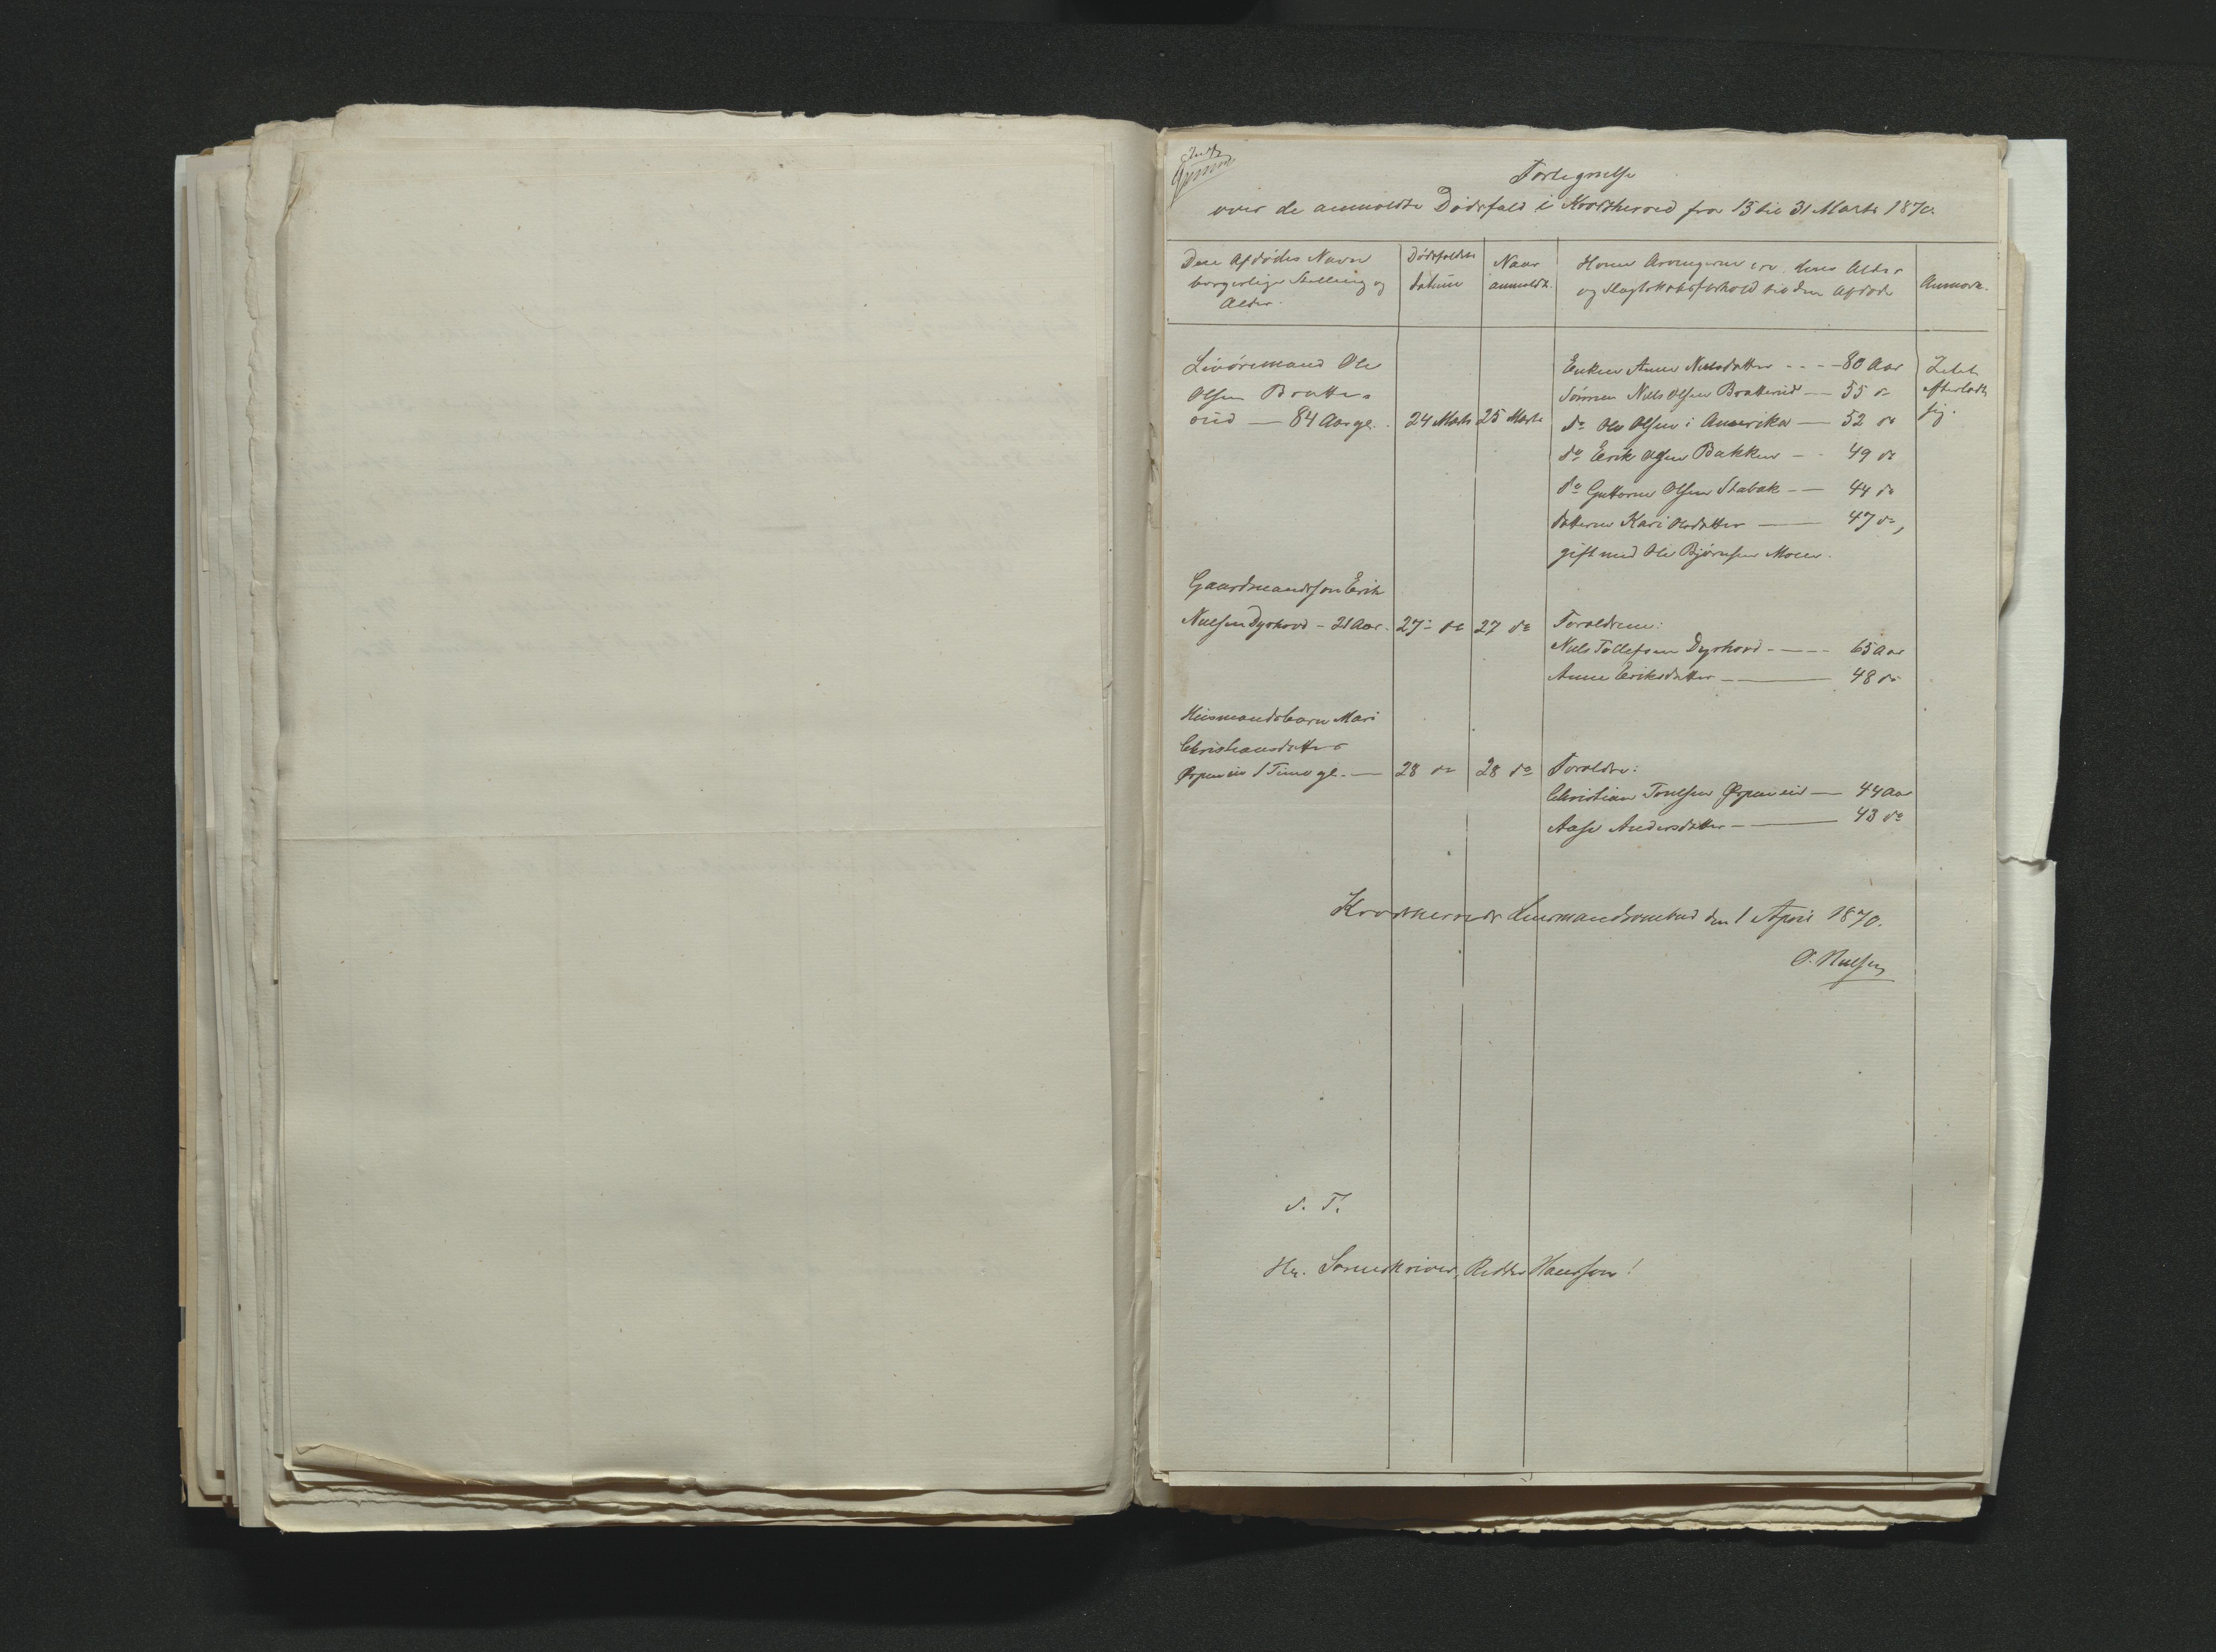 Fortegnelse
over de anmeldte Dødsfald i Krødsherred fra 15 til 31 Marts 1870.
Den Afdødes Navn
borgerlige Stilling og
Alder.
Dødsfaldets
datum
Naar
anmeldt.
Hvem Arvingerne ere, deres Alder
og Slægtskabsforhold til den Afdøde
Anmærk.
Livøremand Ole
Olsen Bratte-
rud — 84 Aar gl.
24 Marts
25 Marts
Enken Anne Nielsdatter - - - 80 Aar
Sønnen Niels Olsen Bratterud — 55 do
do Ole Olsen i Amerika — 52 do
do Erik Olsen Bakken — - 49 do
do Guttorm Olsen Stabak - — 44 do
datteren Kari Olsdatter — 47 do,
gift med Ole Bjørnsen Moen.
Intet
efterladt
sig.
Gaardmandssøn Erik
Nielsen Dyshovd - 21 Aar.
27 do
27 do
Forældrene:
Niels Tollefsen Dyshovd - — - - 65 Aar
Anne Eriksdatter — 48 do
Huusmandsbarn Mari
Christiansdatter
1 Time gl. —
28 do
28 do
Forældre:
Christian — 44 Aar
Aase Andersdatter — 43 do
Krødsherreds Lensmandsombud den 1 April 1870.
O. Nielsen
S. T.
Hr. Sorenskriver, Ridder Hansson!